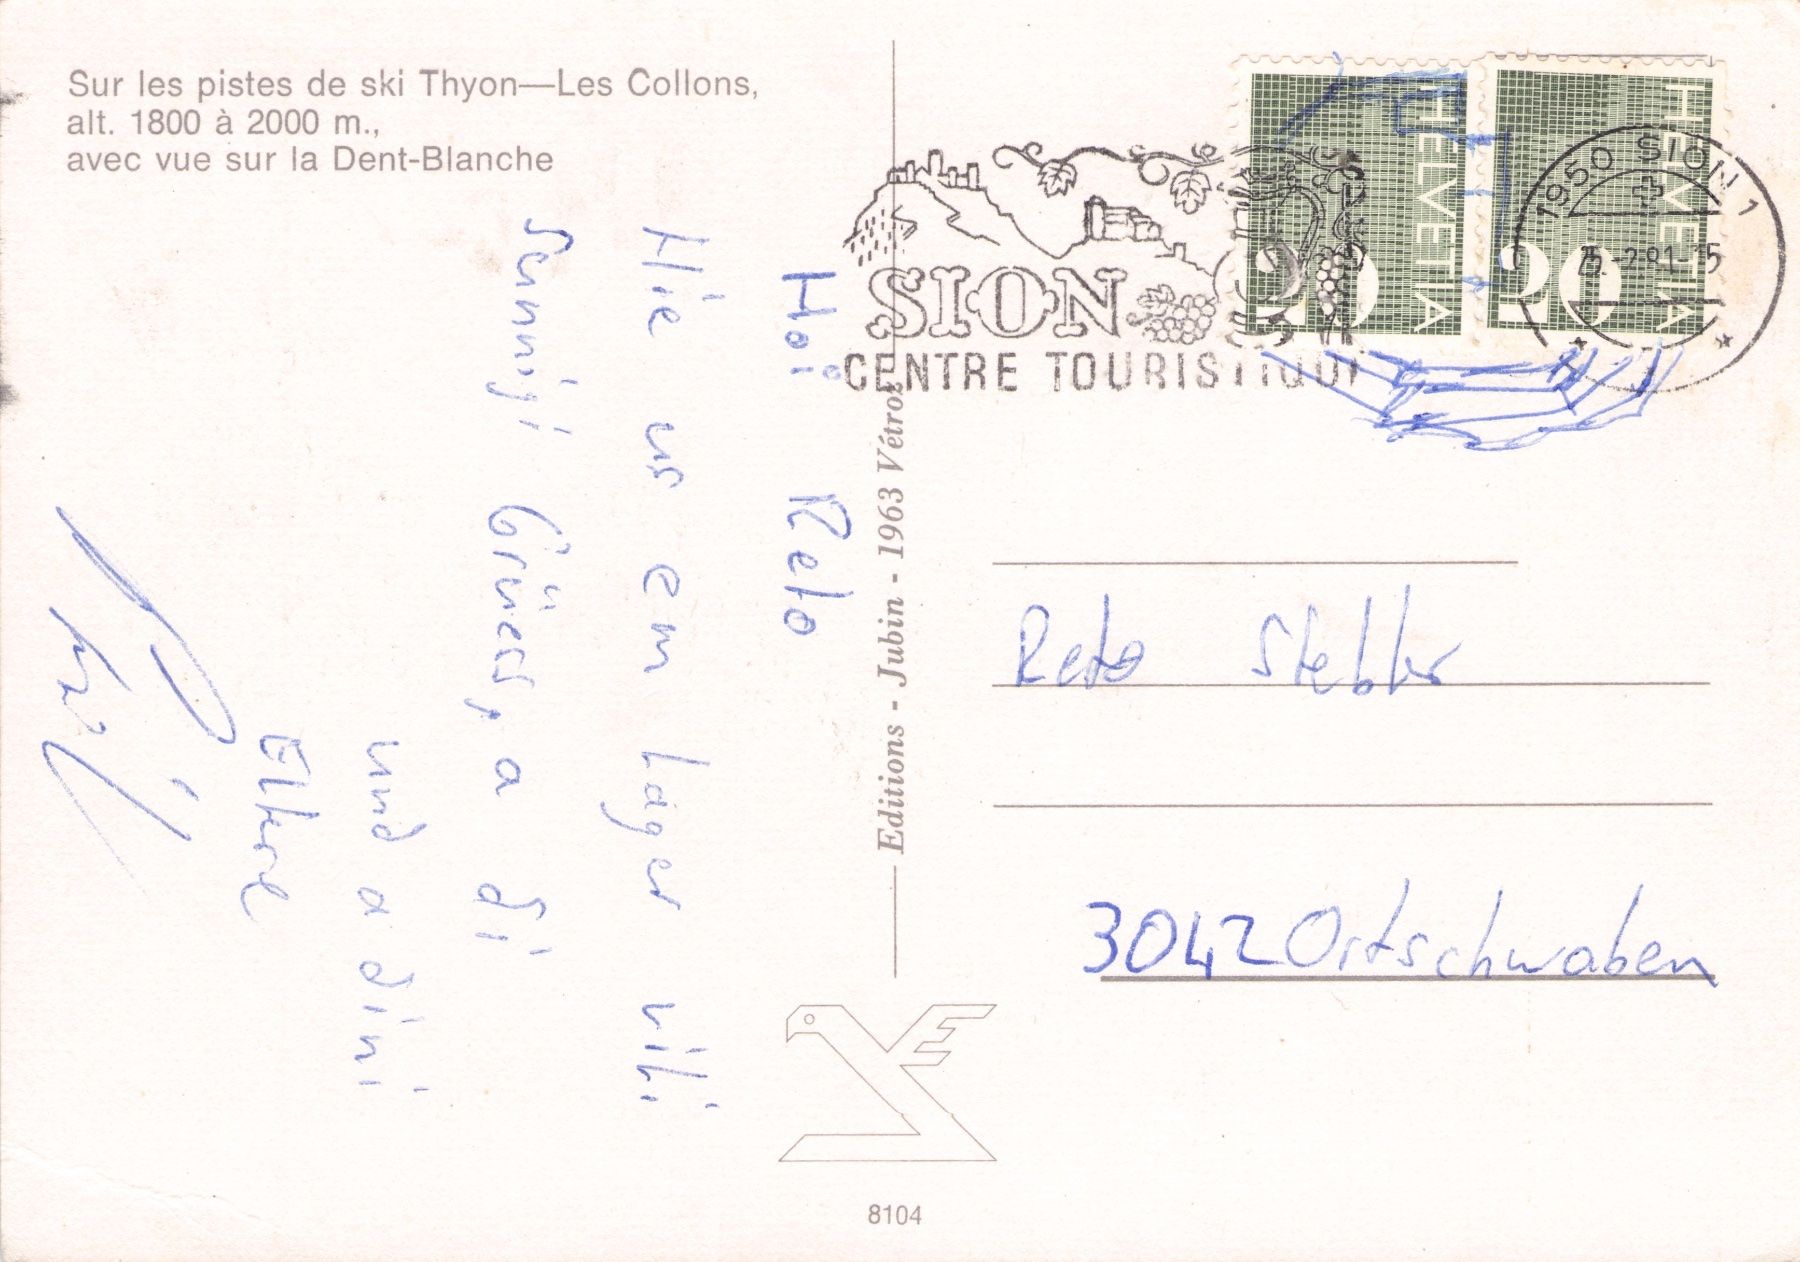 Sur les pistes de ski Thyon—Les Collons,
alt. 1800 à 2000 m.,
avec vue sur la Dent-Blanche
Hoi Reto
Hie us em Lager vili
Sunnigi Grüess, a di
und a dini
Eltere
Editions - Jubin - 1963 Vétroz
SION
CENTRE TOURISTIQUE
HELVETIA
20
HELVETIA
20
1950 SION 1
25.-2.81-15
Reto Stebler
3042 Ortschwaben
8104